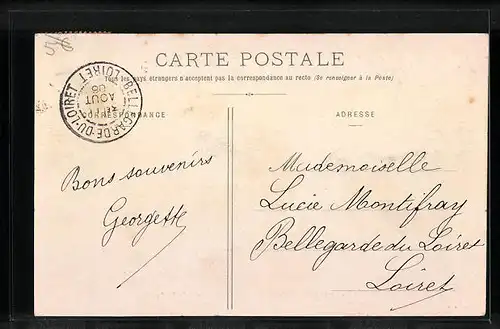 CARTE POSTALE
Tous les pays étrangers n'acceptent pas la correspondance au recto (Se renseigner à la Poste)
BELLEGARDE-DU-LOIRET
LOIRET
AOUT
CORRESPONDANCE
ADRESSE
Bons souvenirs
Georgette
Mademoiselle
Lucie Montifray
Bellegarde du Loiret
Loiret